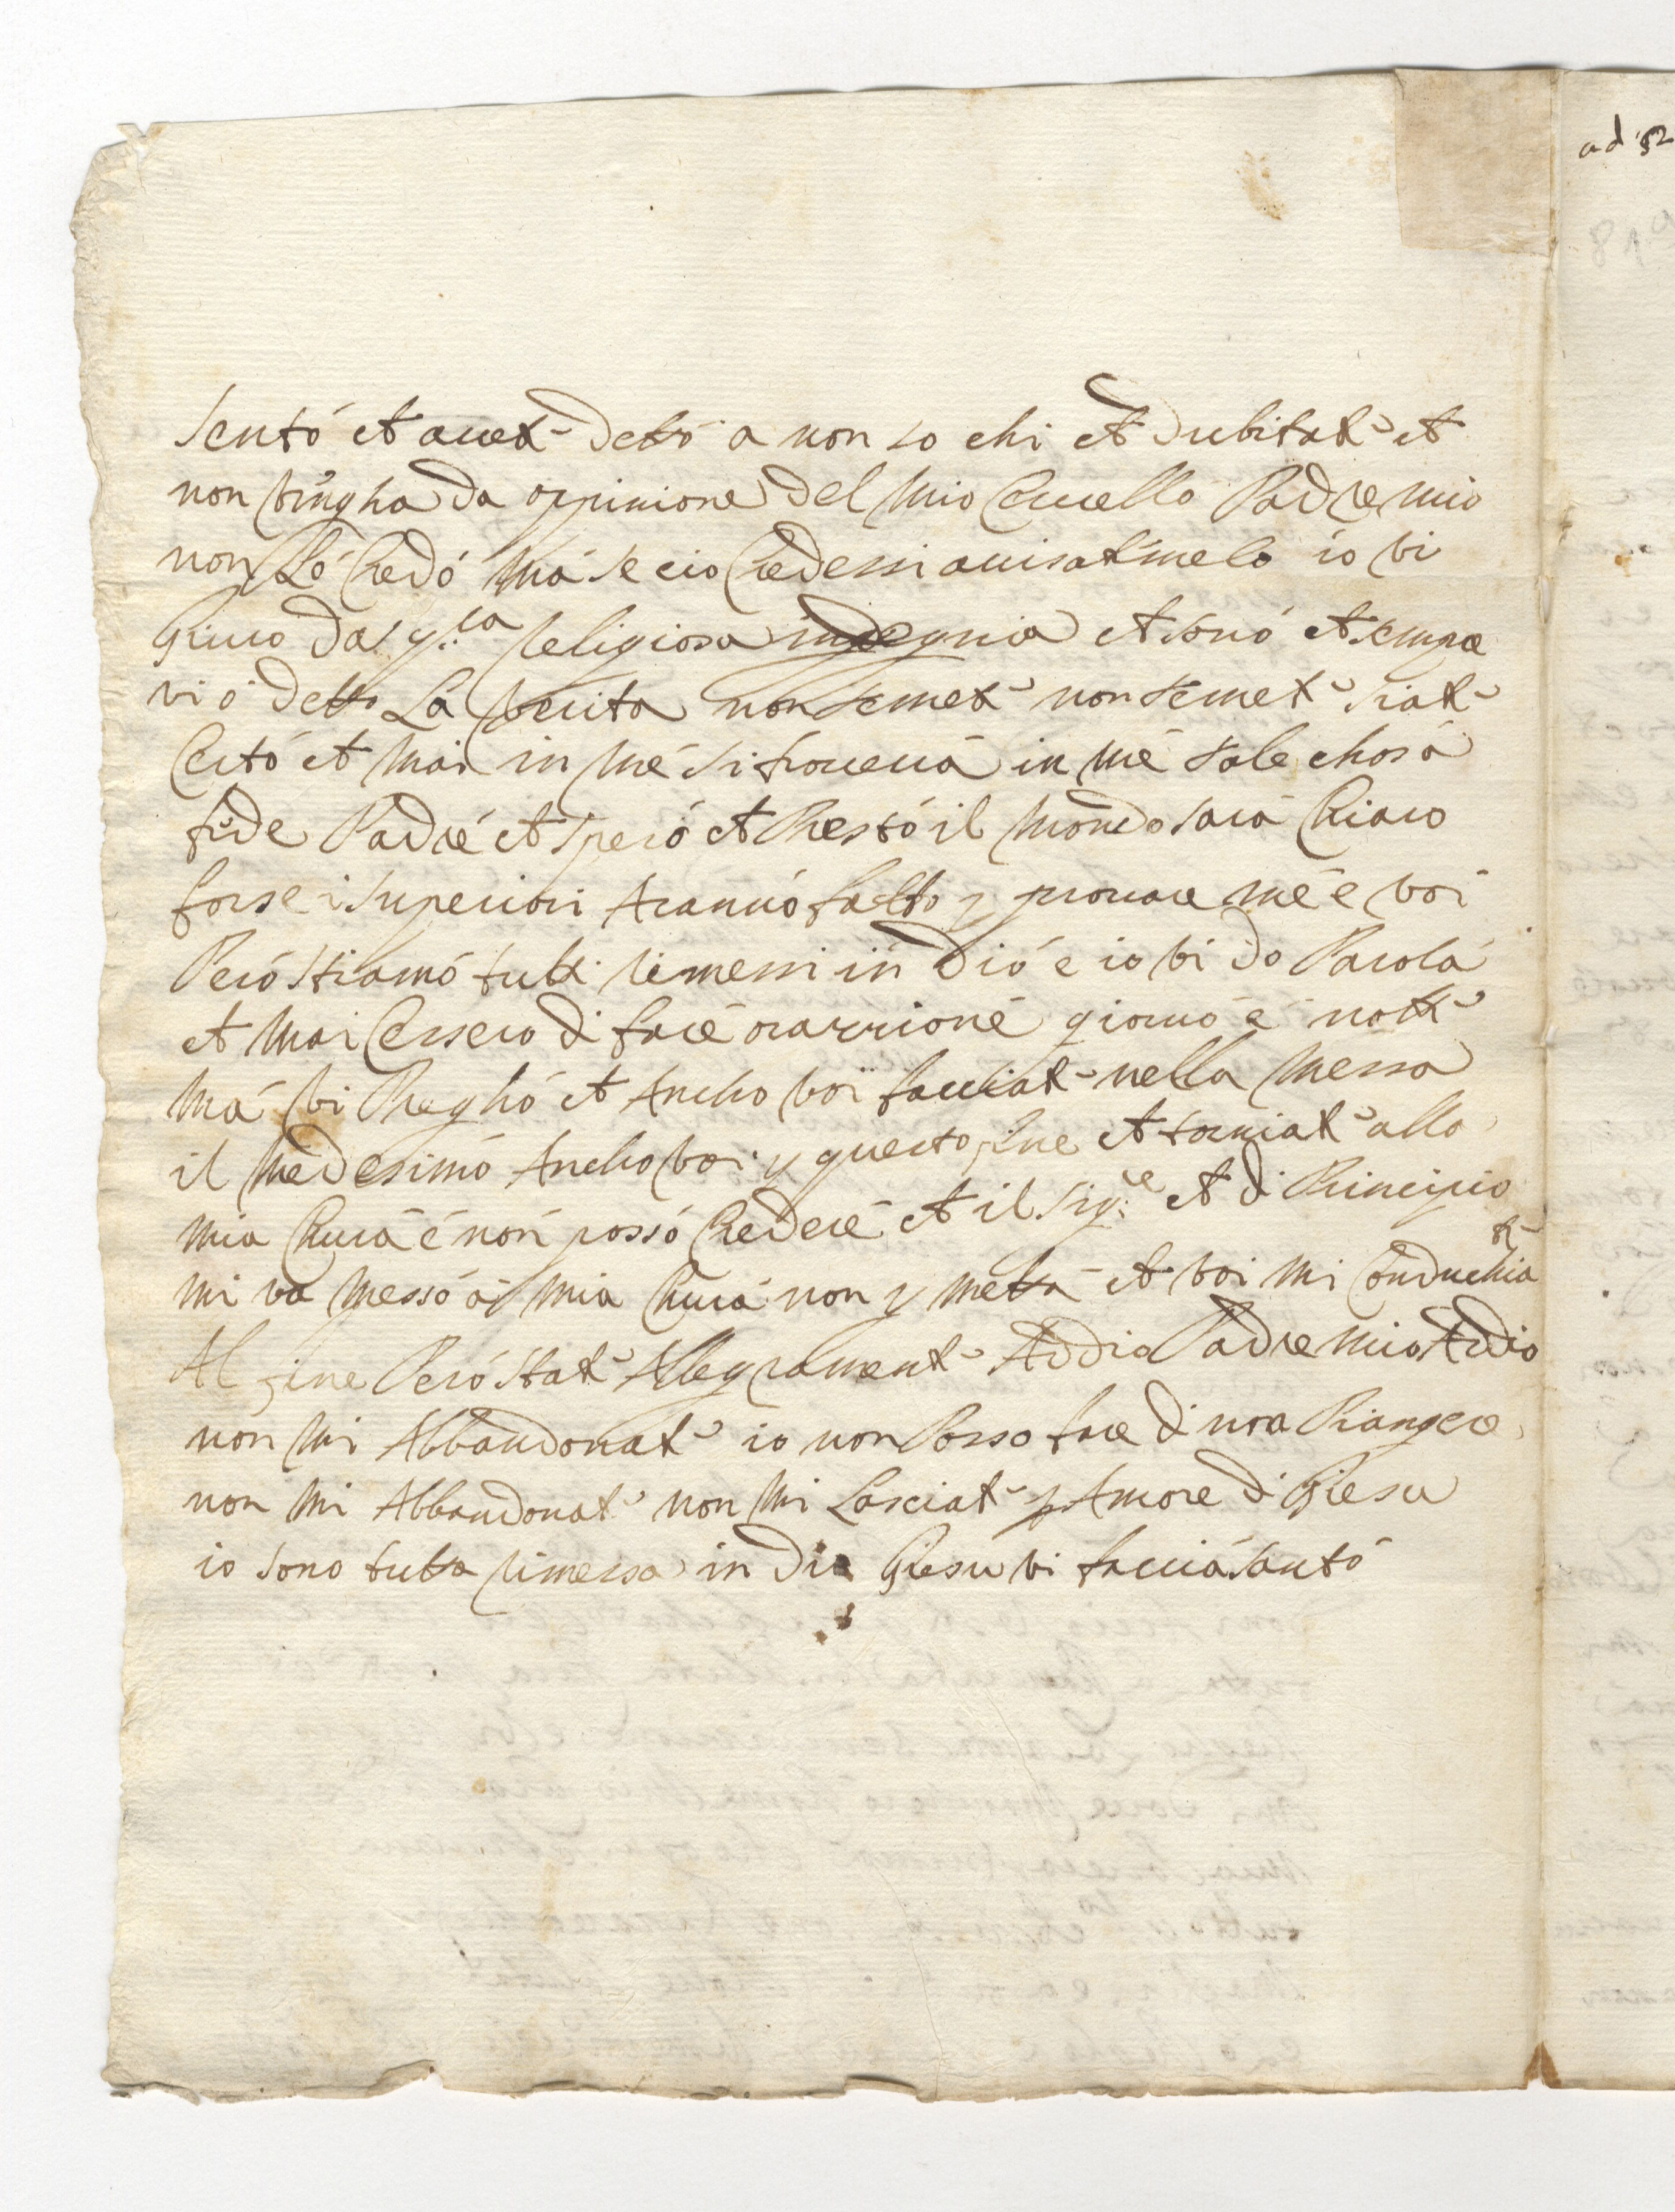 ad 52
Sentó ch avet detto a non so chi ch dubitat ch
non vingha da oppinione del Mio Ceruello Padre mio
non Ló Credó Má se cio Credessi auisatmelo io vi
Giuro da S. religiosa indegnia ch sonó ch sempre
vi ó detto La verita non temet non temet siat
Certó ch Mai in Mé si trouerá in mé tale chosá
fide Padré ch speró ch Prestó il Mondo sará Chiaro
forse i superiori Arannó fatto p prouare mé e voi
Peró stiamó tutti rimessi in Dió é io vi do Parolá
ch Mai Cessero di faré orazzioné giornó é nott
Má vi Preghó ch Ancho voi facciat nella Messa
il Medesimó Ancho voi p questo fine ch torniat alla
mia Churá é non possó Chederé ch il Sig.re ch di Principio
mi va Messó á Mia Churá non p metta ch voi Mi Conduchiat
Al fine Peró stat Allegrament Addio Padre Mio Addio
non Mi Abbandonat io non Posso fare di non Piangere
non Mi Abbandonat non Mi Lasciat p Amore di Giesu
io sono tutta rimessa in Dio Giesu vi facciá santó